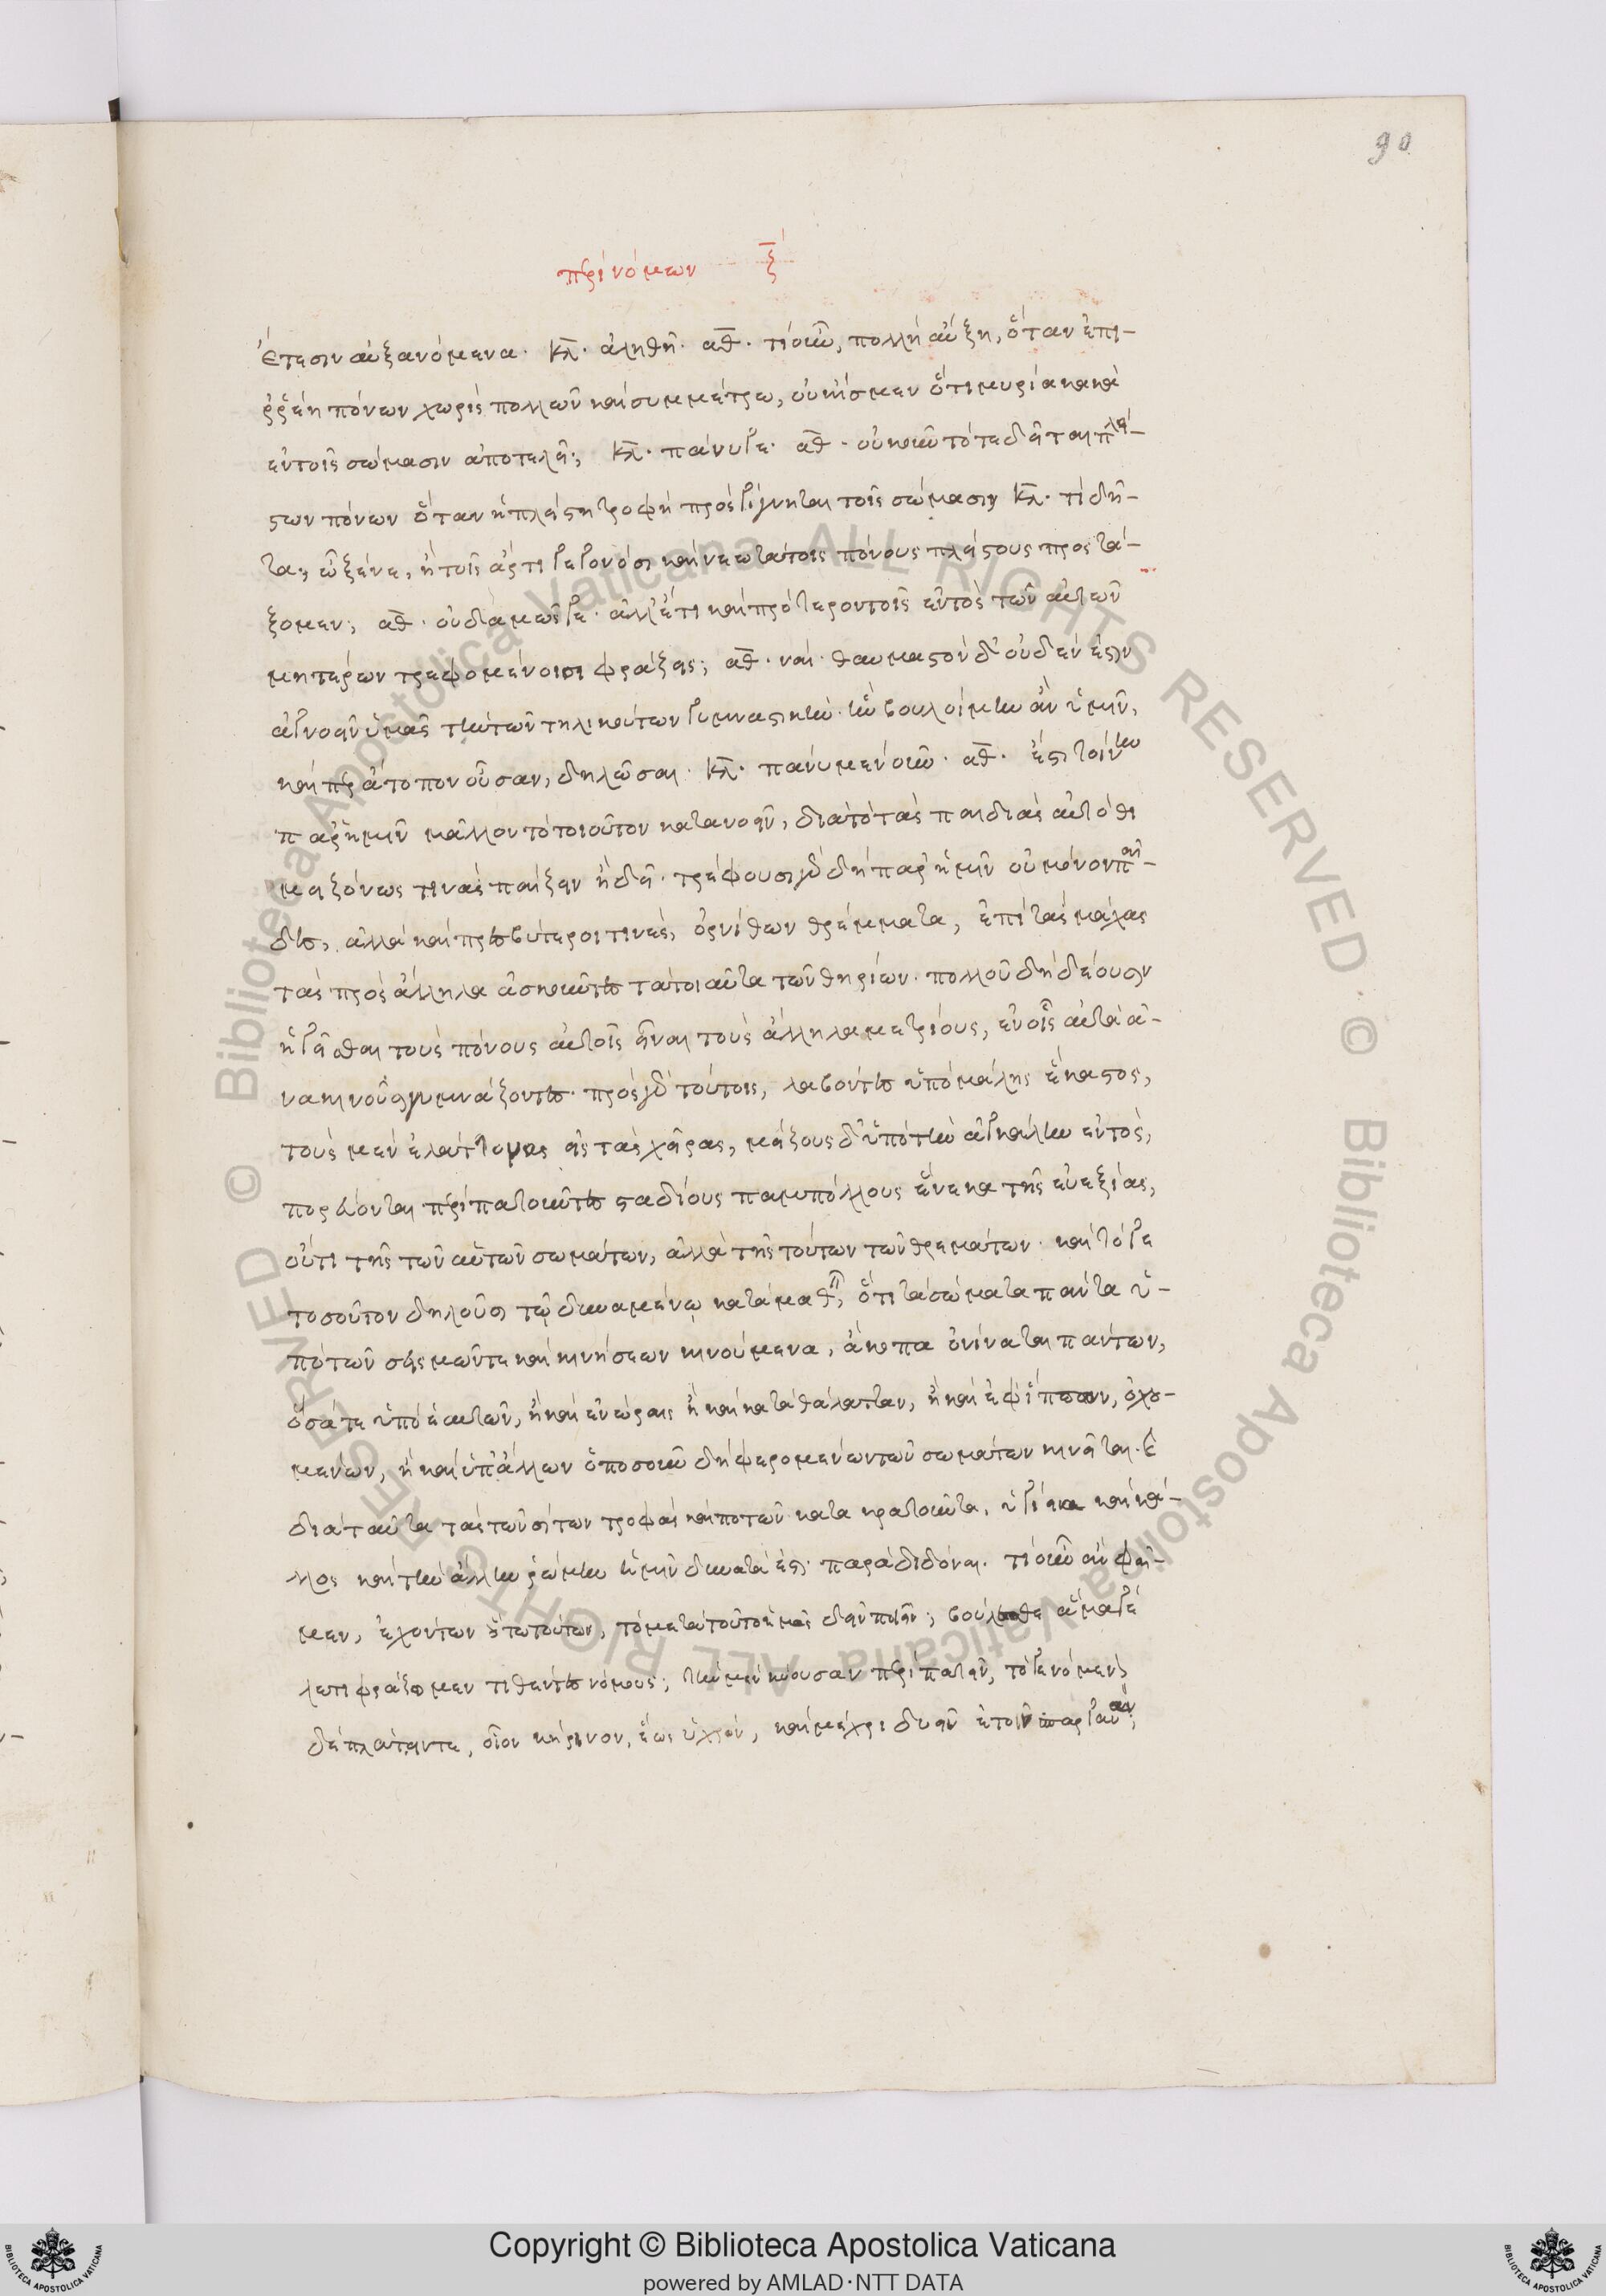 90
περὶ νόμων ξ΄
ἔτεσιν αὐξανόμενα· κλ· ἀληθῆ· αθ· τί οὖν, πολλὴ αὔξη, ὅταν ἐπι-
ρρέη πόνων χωρὶς πολλῶν καὶ συμμέτρω, οὐκ ἴσμεν ὅτι μυρία κακὰ
ἐν τοῖς σώμασιν ἀποτελεῖ; κλ· πάνυ γε· αθ· οὐκοῦν τότε δεῖται πλεί-
στων πόνων ὅταν ἡ πλείστη τροφὴ προσγίγνηται τοῖς σώμασιν κλ· τί δῆ-
τα, ὦ ξένε, ἦ τοῖς ἄρτι γεγονόσι καὶ νεωτάτοις πόνους πλείστους προστά-
ξομεν; αθ· οὐδαμῶς γε· ἀλλ' ἔτι καὶ πρότερον τοῖς ἐντὸς τῶν αὐτῶν
μητέρων τρεφομένοισι φράζεις; αθ· ναί· θαυμαστὸν δ' οὐδέν ἐστιν
ἀγνοεῖν ὑμᾶς τὴν τῶν τηλικούτων γυμναστικήν· ἣν βουλοίμην ἂν ὑμῖν,
καίπερ ἄτοπον οὖσαν, δηλῶσαι· κλ· πάνυ μὲν οὖν· αθ· ἔστι τοίνυν
παρ' ἡμῖν μᾶλλον τὸ τοιοῦτον κατανοεῖν, διὰ τὸ τὰς παιδιὰς αὐτόθι
μειζόνως τινὰς παίζειν ἢ δεῖ· τρέφουσι γὰρ δὴ παρ' ἡμῖν οὐ μόνον παῖ-
δες, ἀλλὰ καὶ πρεσβύτεροι τινὲς, ὀρνίθων θρέμματα, ἐπὶ τὰς μάχας
τὰς πρὸς ἄλληλα ἀσκοῦντες τὰ τοιαῦτα τῶν θηρίων· πολλοῦ δὴ δέουσιν
ἡγεῖσθαι τοὺς πόνους αὐτοῖς εἶναι τοὺς ἄλληλα μετρίους, ἐν οἷς αὐτὰ ἀ-
νακινοῦσι γυμνάζοντες· πρὸς γὰρ τούτοις, λαβόντες ὑπὸ μάλης ἕκαστος,
τοὺς μὲν ἐλάττονας εἰς τὰς χεῖρας, μείζους δ' ὑπὸ τὴν ἀγκάλην ἐντὸς,
πορεύονται περιπατοῦντες σταδίους παμπόλλους ἕνεκα τῆς εὐεξίας,
οὔτι τῆς τῶν αὑτῶν σωμάτων, ἀλλὰ τῆς τούτων τῶν θρεμάτων· καὶ τό γε
τοσοῦτον δηλοῦσι τῷ δυναμένῳ καταμαθεῖν, ὅτι τὰ σώματα πάντα ὑ-
πὸ τῶν σεισμῶν τε καὶ κινήσεων κινούμενα, ἄκοπα ὀνίναται πάντων,
ὅσά τε ὑπὸ ἑαυτῶν, ἢ καὶ ἐν αἰώραις ἢ καὶ κατὰ θάλατταν, ἢ καὶ ἐφ' ἵππων, ὀχου-
μένων, ἢ καὶ ὑπ' ἄλλων ὁποσοῦν δὴ φερομένων τῶν σωμάτων κινεῖται· καὶ
διὰ ταῦτα τὰς τῶν σίτων τροφὰς καὶ ποτῶν κατακρατοῦντα, ὑγίεια καὶ κάλ-
λος καὶ τὴν ἄλλην ῥώμην ἡμῖν δυνατά ἐστι παραδιδόναι· τί οὖν ἂν φαῖ-
μεν, ἐχόντων οὕτω τούτων, τὸ μετὰ τοῦτο ἡμᾶς δεῖν ποιεῖν; βούλεσθε ἅμα γέ-
λωτι φράζωμεν τιθέντες νόμους; τὴν μὲν κύουσαν περιπατεῖν, τὸ γενόμενον
δὲ πλάττειν τε, οἷον κήρινον, ἕως ὑγρόν, καὶ μέχρι δυεῖν ἐτοῖν σπαργανᾶν;